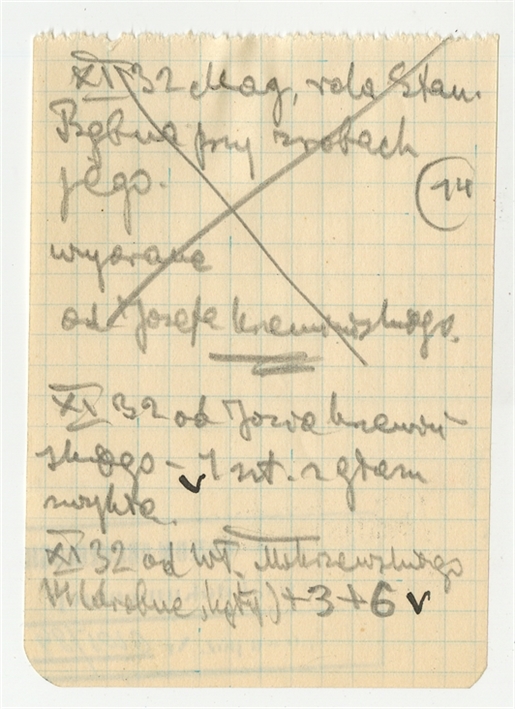 XI 32 Mag, rola Stan.
Bębna przy grobach
jego.
14
wyorane
od Józefa Krzemińskiego.
XI 32 od Józia Krzemiń-
skiego - 1 szt. z głam
zwykła.
XI 32 od Wł. Mokrzewskiego
) + 3 + 6